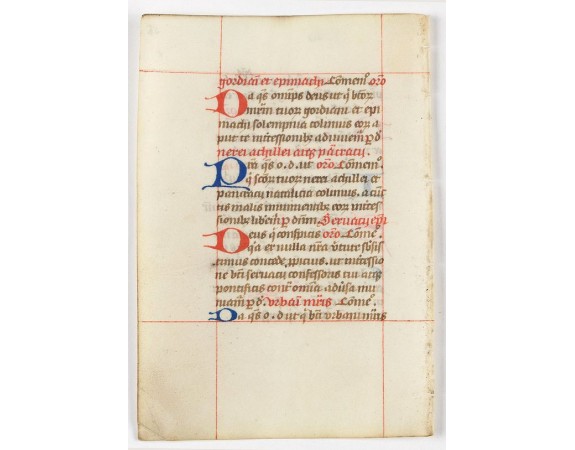 gordiani et epimachi. Com̄em̄. or̄o
Da q̄s om̄ps deus ut q̄ btōꝝ
mr̄m̄ tuoꝝ gordiani et epi
machi solempnia colimus eoꝝ a
put te int̄cessionibꝫ adiuuem̄. p̄ d̄
nerei achillei atqꝫ pancracii.
Pr̄a q̄s o. d. ut or̄o Com̄em̄.
q̄ scōꝝ tuoꝝ nerei achillei et
pancracii natalicia colimus. a cūc
tis malis iminentibꝫ eoꝝ int̄ces
sionibꝫ libem̄. p̄ dn̄m. Seruacii ep̄i
Deus q̄ conspicis or̄o Com̄e.
q̄a ex nulla nr̄a v̄tute subsis
timus concede p̄picius. ut int̄cessio
ne bt̄i seruacii confessoris tui atqꝫ
pontificis cont̄ omnia adūsa mu
niam̄. p̄ d̄. vrbani mr̄is Com̄e.
Da q̄s o. d. ut q̄ bt̄i vrbani mr̄is